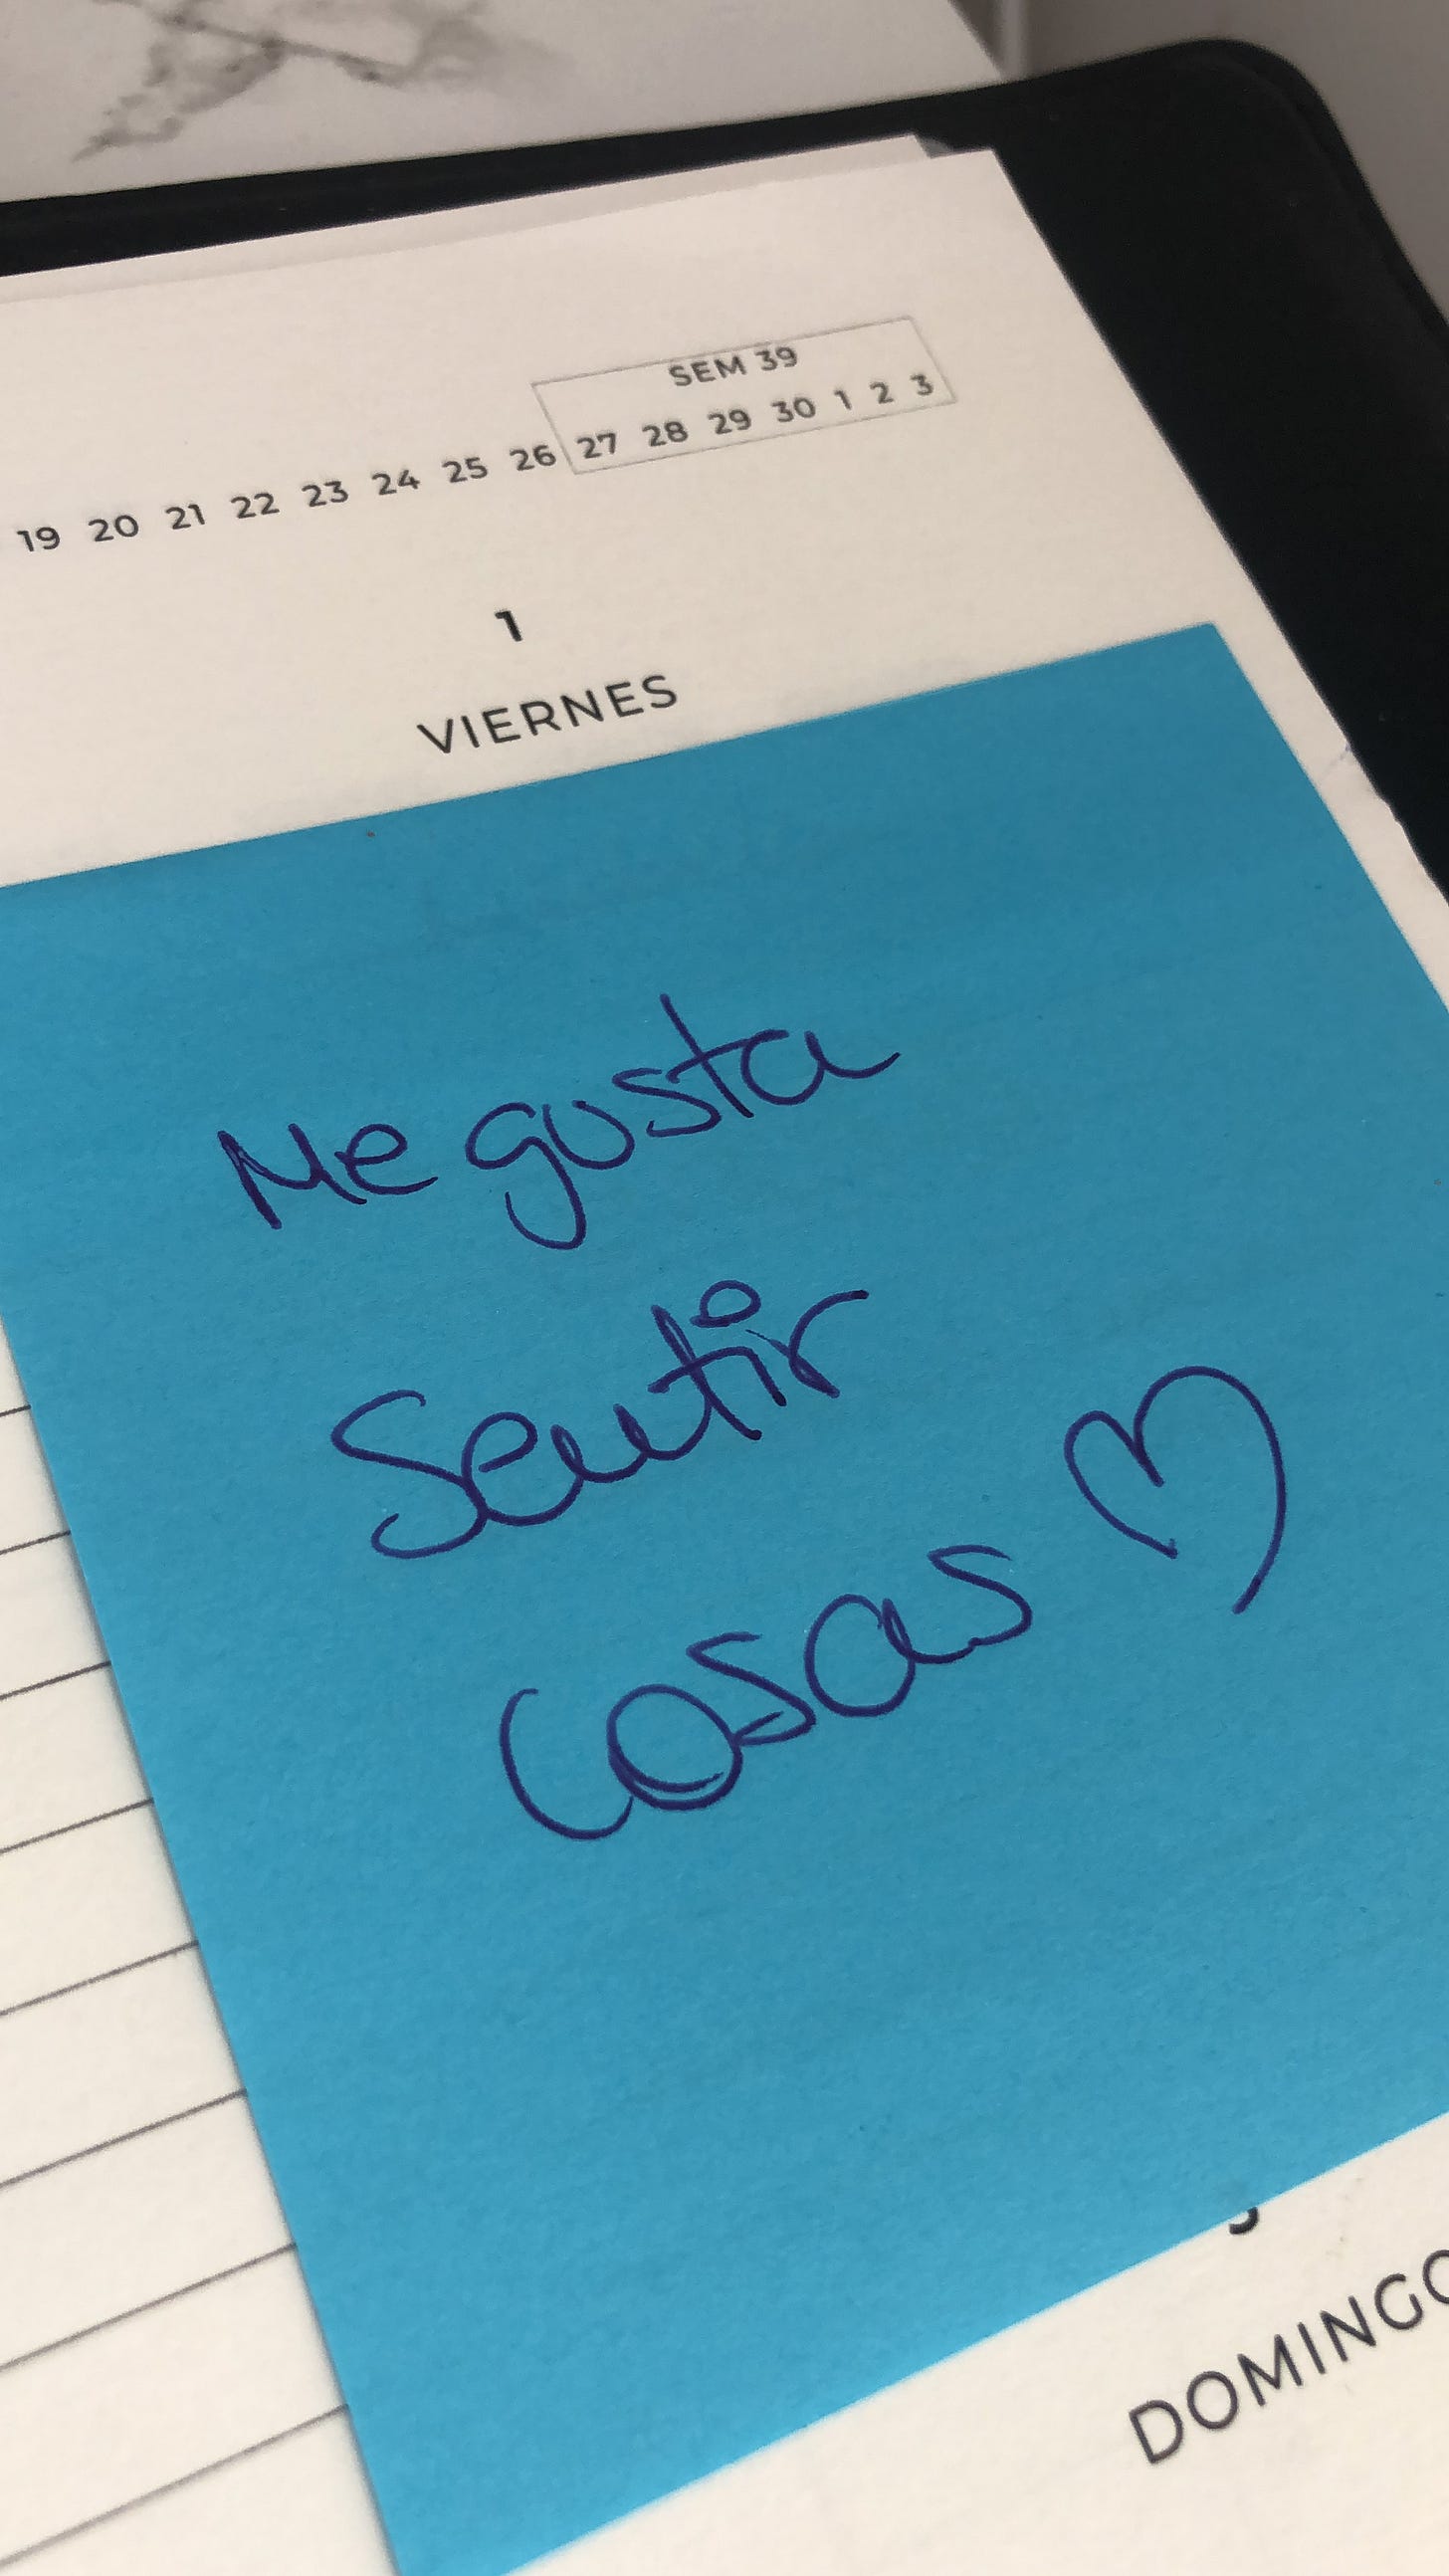 SEM 39
19 20 21 22 23 24 25 26 27 28 29 30 1 2 3
1
VIERNES
Me gusta
Sentir
cosas
DOMINGO